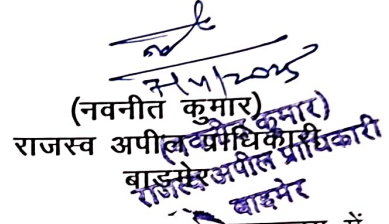 7/4/2025
(नवनीत कुमार)
राजस्व अपील प्राधिकारी
बाड़मेर
(नवनीत कुमार)
राजस्व अपील प्राधिकारी
बाड़मेर
में